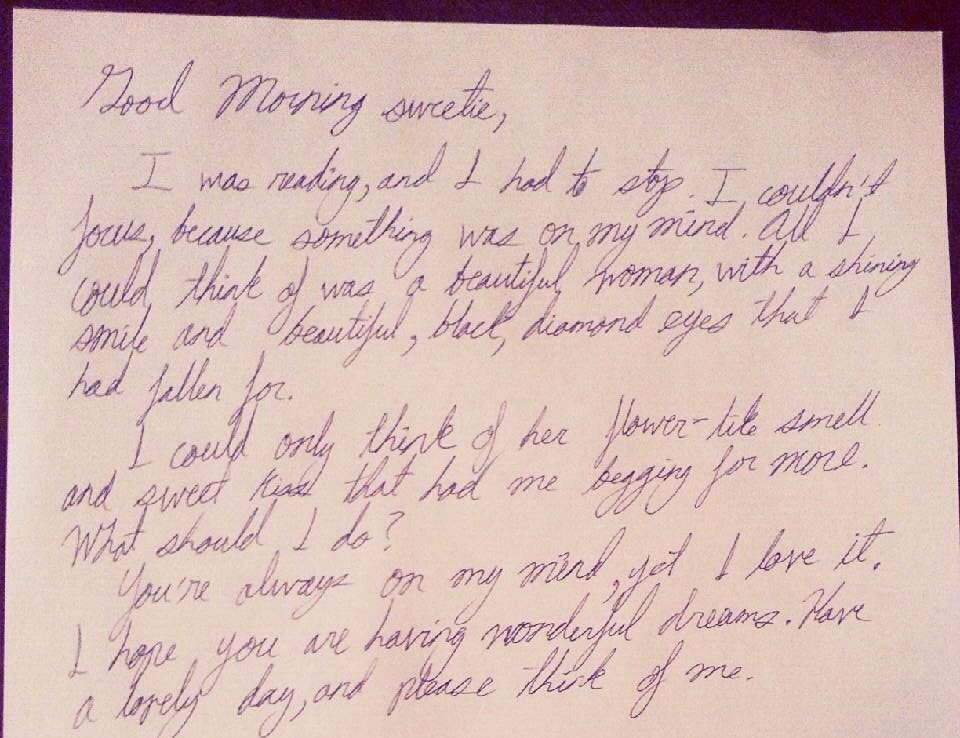 Good Morning sweetie,
I was reading, and I had to stop. I couldn't
focus, because something was on my mind. All I
could think of was a beautiful woman, with a shining
smile and beautiful, black, diamond eyes that I
had fallen for.
I could only think of her flower-like smell
and sweet kiss that had me begging for more.
What should I do?
You're always on my mind, yet I love it.
I hope you are having wonderful dreams. Have
a lovely day, and please think of me.